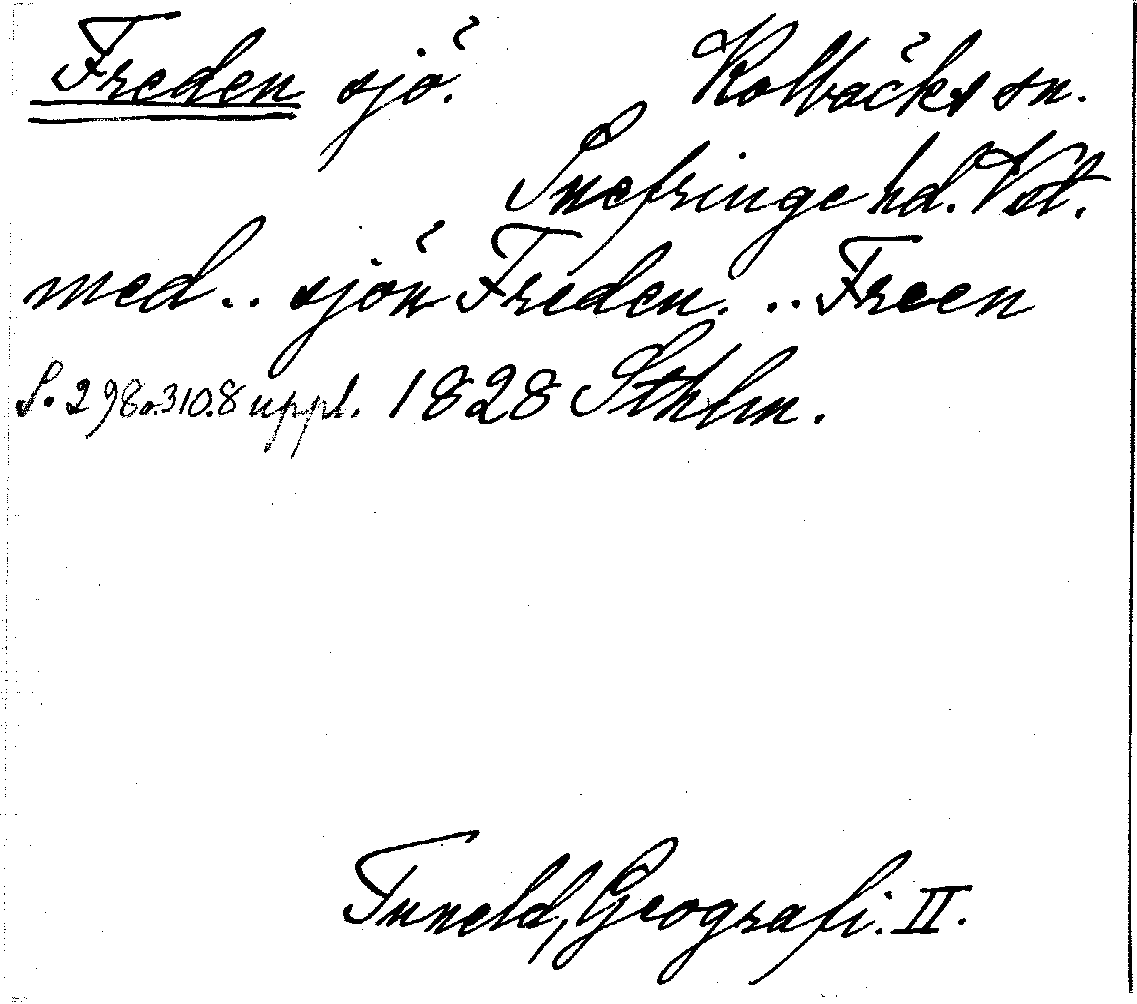 Freden sjö. Kolbäcks sn.
Snefringe hd. Vstm.
med.. sjön Freden. .. Freen
S. 298 o. 310. 8 uppl. 1828 Sthlm.
Tuneld, Geografi. II.